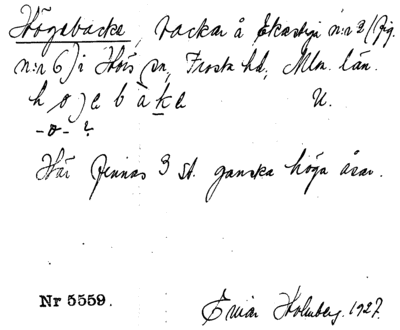 Högabacke, backar å Ekastiga n:r 2 (fig.
n:r 6) i Hörs sn, Frosta hd, Mlm. län.
U.
-o- ?
Här finnas 3 st. ganska höga åsar.
Nr 5559.
Einar Holmberg. 1927.